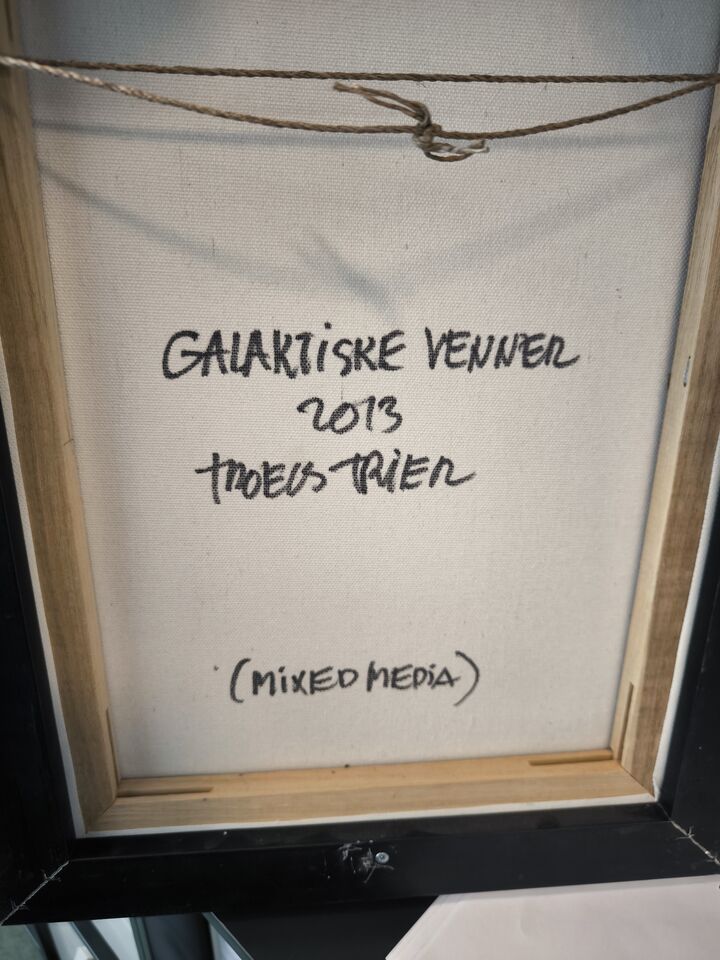 GALAKTiSKE VENNER
2013
TROELS TRiER
(MiXED MEDiA)